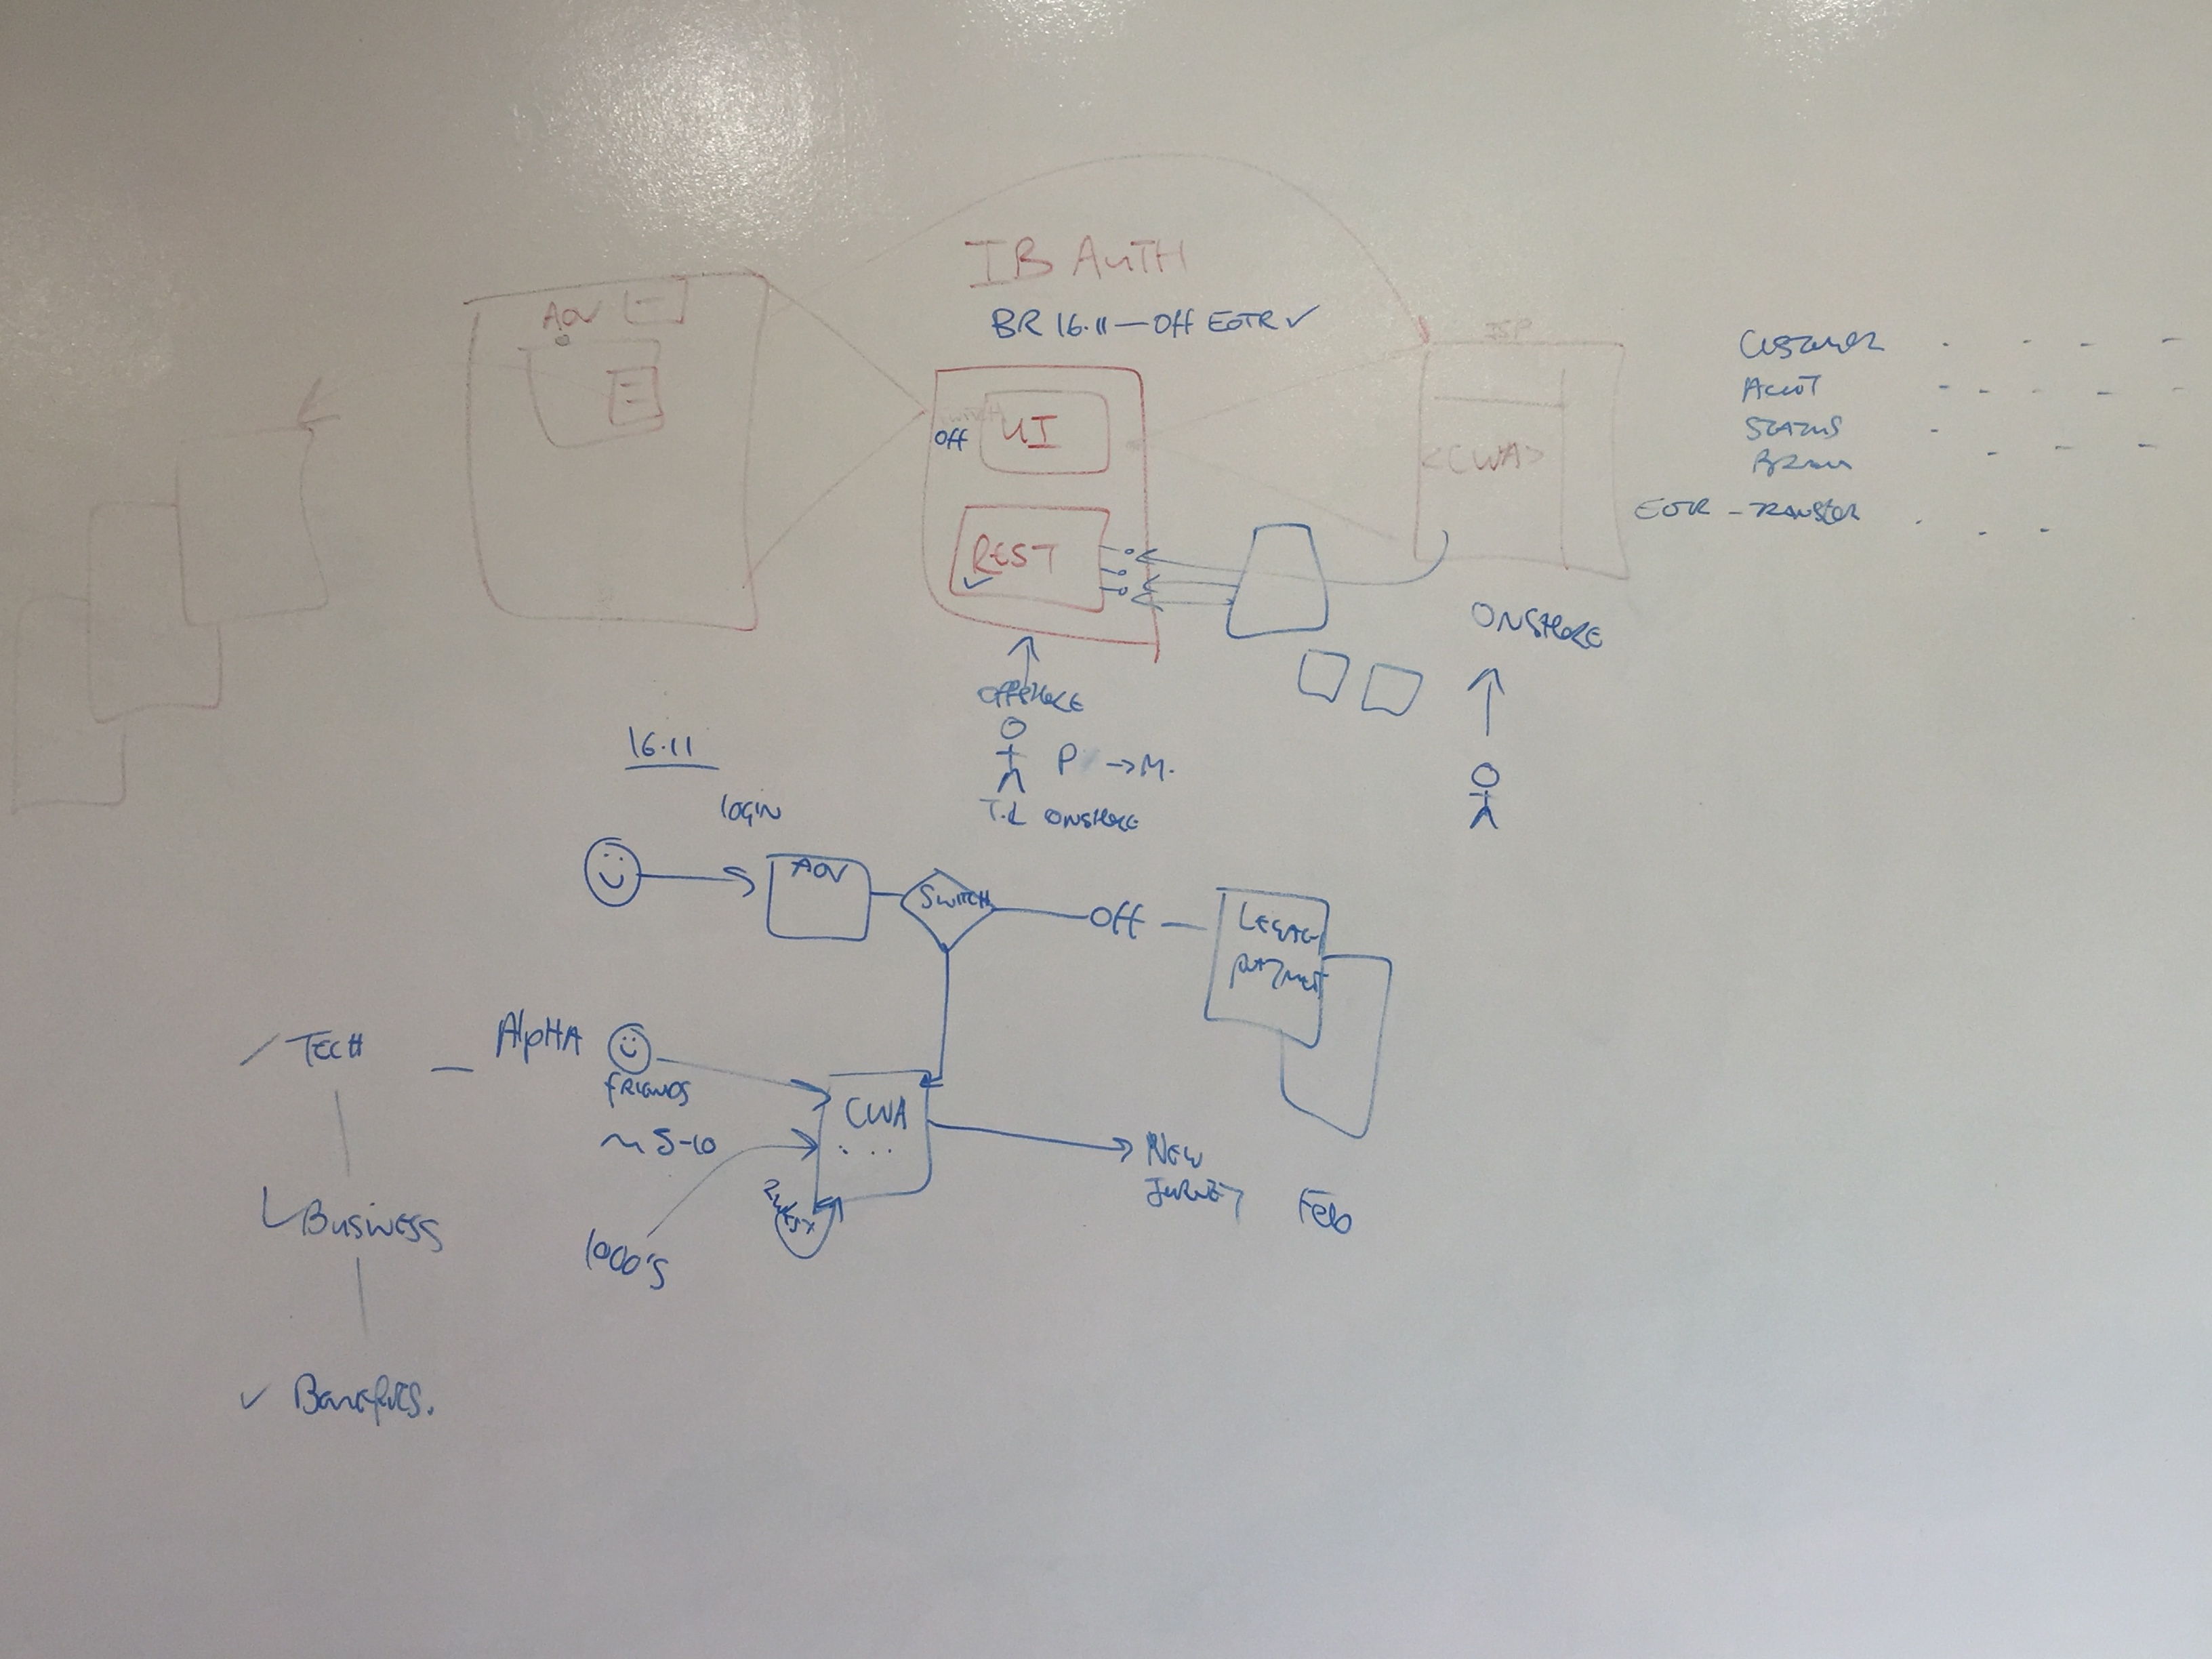 IB AUTH
BR 16.11 — Off EOTR ✓
AOV
Off
UI
REST
<CWA>
CUSTOMER
STATUS
EOTR - TRANSFER
ONSHORE
OFFSHORE
P → M.
T.L ONSHORE
16.11
LOGIN
AOV
SWITCH
Off
LEGACY
PAYMENT
TECH
— AlpHA
FRIENDS
~ 5-10
CWA
. . .
NEW
JURNEY
Feb
BusiNESS
1000's
✓ Benefits.